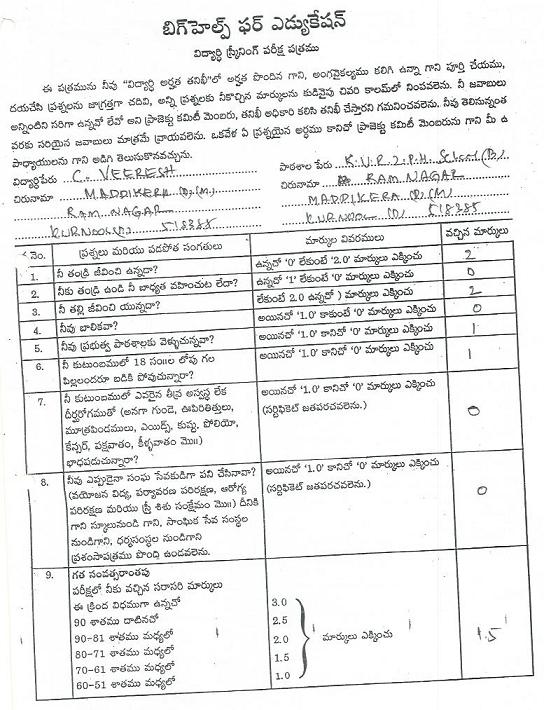 బిగ్‌హెల్ప్ ఫర్ ఎడ్యుకేషన్
విద్యార్థి స్క్రీనింగ్ పరీక్ష పత్రము
ఈ పత్రమును నీవు "విద్యార్థి అర్హత తనిఖీ"లో అర్హత పొందిన గాని, అంగవైకల్యము కలిగి ఉన్నా గాని పూర్తి చేయుము,
దయచేసి ప్రశ్నలను జాగ్రత్తగా చదివి, అన్ని ప్రశ్నలకు నీకొచ్చిన మార్కులను కుడివైపు చివరి కాలమ్‌లో నింపవలెను. నీ జవాబులు
అన్నింటిని సరిగా ఉన్నవో లేవో అని ప్రాజెక్టు కమిటీ మెంబరు, తనిఖీ అధికారి కలిసి తనిఖీ చేస్తారని గమనించవలెను. నీవు తెలుసున్నంత
వరకు సరియైన జవాబులు మాత్రమే వ్రాయవలెను. ఒకవేళ ఏ ప్రశ్నయైన అర్థము కానిచో ప్రాజెక్టు కమిటీ మెంబరును గాని మీ ఉ
పాధ్యాయులను గాని అడిగి తెలుసుకొనవచ్చును.
విద్యార్థిపేరు C. VEERESH పాఠశాల పేరు K.V.R.Z.P.H. School (B)
చిరునామా MADDIKERA (P), (M) చిరునామా RAM NAGAR
RAM NAGAR MADDIKERA (P), (M)
KURNOOL (D) 518385 KURNOOL (D) 518385
నెం. ప్రశ్నలు మరియు పడపోత సంగతులు మార్కుల వివరములు వచ్చిన మార్కులు
1. నీ తండ్రి జీవించి ఉన్నడా? ఉన్నచో '0' లేకుంటే '2.0' మార్కులు ఎక్కించు 2
2. నీకు తండ్రి ఉండి నీ బాధ్యత వహించుట లేదా? ఉన్నచో '1' లేకుంటే '0' మార్కులు ఎక్కించు 0
3. నీ తల్లి జీవించి యున్నదా? లేకుంటే 2.0 ఉన్నచో ) మార్కులు ఎక్కించు 2
4. నీవు బాలికవా? అయినచో '1.0' కాకుంటే '0' మార్కులు ఎక్కించు 0
5. నీవు ప్రభుత్వ పాఠశాలకు వెళ్ళుచున్నవా? అయినచో '1.0' కానిచో '0' మార్కులు ఎక్కించు 1
6. నీ కుటుంబములో 18 సం॥ల లోపు గల అయినచో '1.0' కానిచో '0' మార్కులు ఎక్కించు 1
పిల్లలందరూ బడికి పోవుచున్నారా?
7. నీ కుటుంబములో ఎవరైన తీవ్ర అస్వస్థ లేక అయినచో '1.0' కానిచో '0' మార్కులు ఎక్కించు 0
దీర్ఘరోగముతో (అనగా గుండె, ఊపిరితిత్తులు, (సర్టిఫికెట్ జతపరచవలెను.)
మూత్రపిండములు, ఎయిడ్స్, కుష్ఠు, పోలియో,
కేన్సర్, పక్షవాతం, కీళ్ళవాతం మొ॥)
బాధపడుచున్నారా?
8. నీవు ఎప్పుడైనా సంఘ సేవకుడిగా పని చేసినావా? అయినచో '1.0' కానిచో '0' మార్కులు ఎక్కించు 0
(వయోజన విద్య, పర్యావరణ పరిరక్షణ, ఆరోగ్య (సర్టిఫికెట్ జతపరచవలెను.)
పరిరక్షణ మరియు స్త్రీ శిశు సంక్షేమం మొ॥) దీనికి
గాని స్కూలునుండి గాని, సాంఘిక సేవ సంస్థల
నుండిగాని, ధర్మసంస్థల నుండిగాని
ప్రశంసాపత్రము పొంది ఉండవలెను.
9. గత సంవత్సరాంతపు
పరీక్షలో నీకు వచ్చిన సరాసరి మార్కులు
ఈ క్రింద విధముగా ఉన్నచో 3.0
90 శాతము దాటినచో 2.5
90-81 శాతము మధ్యలో 2.0 మార్కులు ఎక్కించు 1.5
80-71 శాతము మధ్యలో 1.5
70-61 శాతము మధ్యలో 1.0
60-51 శాతము మధ్యలో